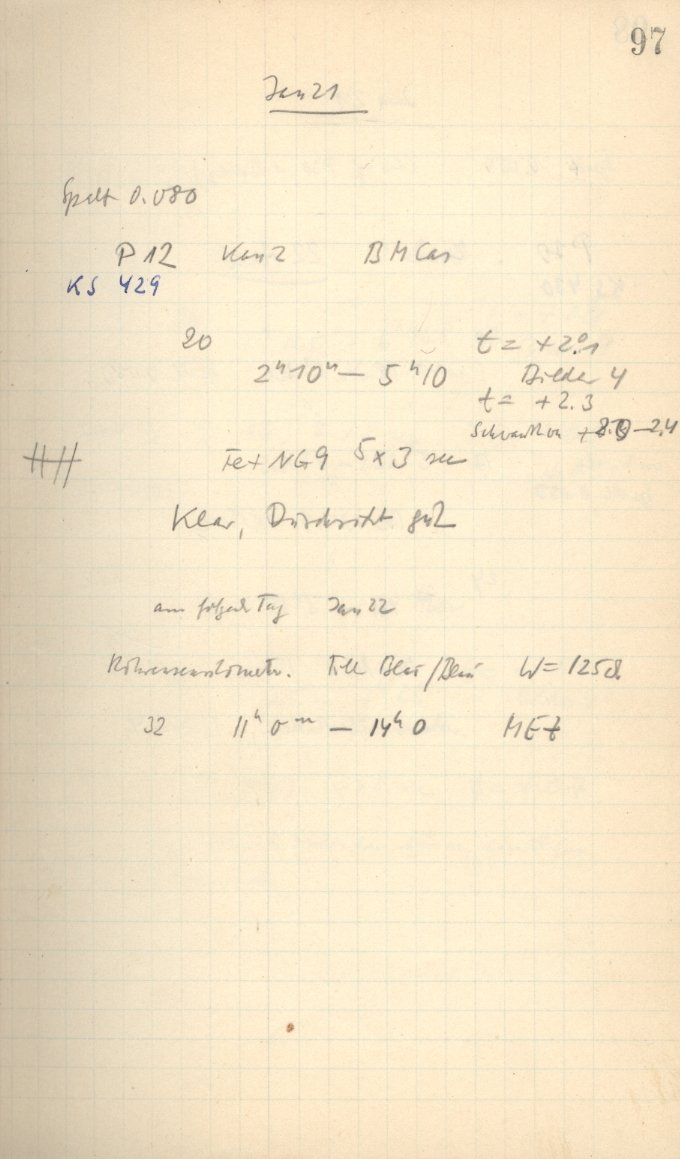 97
Jan 21
Spalt 0.080
P 12 Kam 2 BM Cas
KS 429
20 t = +2°.1
2h 10m — 5h 10 Bilder 4
t = +2.3
Fe + NG9 5 x 3 sec
Klar, Durchsicht gut
am folgend Tag Jan 22
Röhrensensitometer. Filt Blau/Blau W = 125
32 11h 0m — 14h 0 MEZ